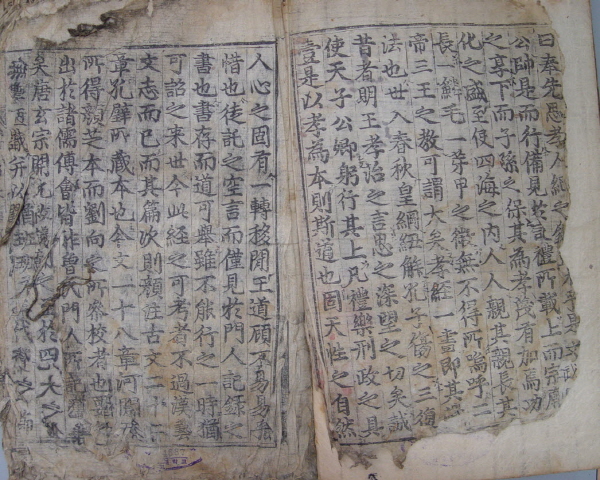 曰奉先思孝人紀之
公帥是而行備見於記禮所載上而宗廟
之享下而子孫之保其為孝莫有加焉功
化之盛至使四海之內人人親其親長其
長一鱗毛一芽甲之微無不得所嗚呼二
帝三王之教可謂大矣孝經一書即其
法也世入春秋皇綱紐解孔子傷之三復
昔者明王孝治之言思之深望之切矣誠
使天子公卿躬行其上凡禮樂刑政之具
壹是以孝為本則斯道也固天性之自然
人心之固有一轉移間王道顧不易易乎
惜也徒託之空言而僅見於門人記錄之
書也書存而道可舉雖不能行之一時猶
可詔之來世今此經之可考者不過漢藝
文志而已而其篇次則顏注古文二十二
章孔壁所藏本也今文一十八章河間
所得顏芝本而劉向之所參校者也要
出於諸儒傅會皆非曾氏門人所記
矣唐玄宗開元